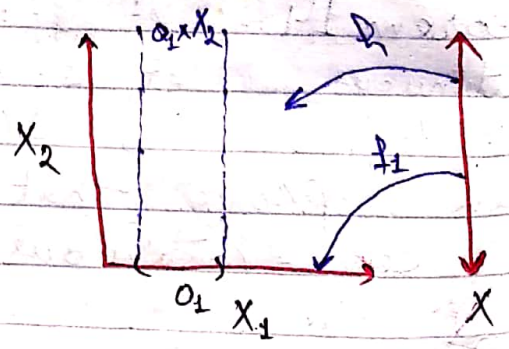 O₁×X₂
h
X₂
f₁
( )
O₁
X₁
X